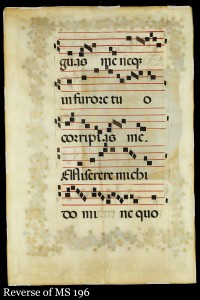 guas me neqꝫ
in furore tu o
corripias me.
Miserere michi
do mi ne quo
Reverse of MS 196